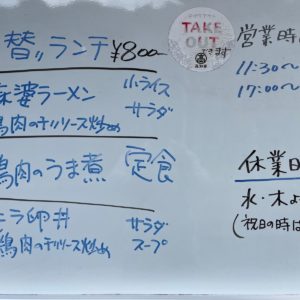 替りランチ ¥800
TAKE OUT
できます
麻婆ラーメン 小ライス サラダ
鶏肉のチリソース炒め
鶏肉のうま煮 定食
ニラ卵丼 サラダ
鶏肉のチリソース炒め スープ
営業時
11:30〜
17:00〜
休業日
水・木よ
(祝日の時は